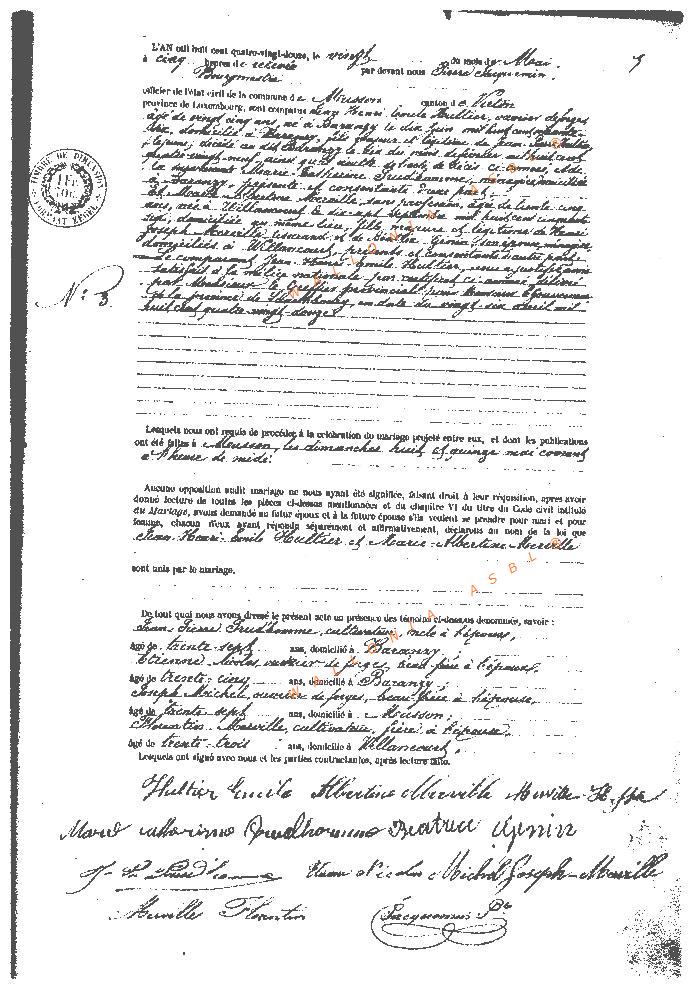 L'AN mil huit cent quatre-vingt-douze, le vingt du mois de Mai.
5
à cinq heures de relevée par devant nous Pierre Jacquemin,
Bourgmestre
officier de l'état civil de la commune de Musson canton de Virton
province de Luxembourg, sont comparus Jean Henri Emile Hultier, ouvrier de forges
âgé de vingt cinq ans, né à Baranzy le dix juin mil huit cent soixante
six, domicilié à Baranzy, fils majeur et légitime de Jean
décédé au dit Baranzy le du mois de mil huit cent
quatre-vingt-neuf, ainsi qu'il résulte de l'acte de décès ci-annexé, et de
la survivante Marie-Catherine Prudhomme, ménagère, domiciliée
à Baranzy, présente et consentante d'une part;
Et Marie Albertine Merville, sans profession, âgée de trente cinq
ans, née à Willancourt le dix-sept septembre mil huit cent cinquante
six, domiciliée au même lieu, fille majeure et légitime de Henri
Joseph Merville, tisserand et de Béatrix Génin, son épouse, ménagère
domiciliés à Willancourt, présents et consentants d'autre part.
Le comparant Jean-Henri-Emile Hultier, nous a justifié avoir
satisfait à la milice nationale par certificat ci-annexé délivré
par Monsieur le Greffier provincial pour Monsieur le Gouverneur
de la province de Luxembourg, en date du vingt six avril mil
huit cent quatre-vingt-douze.
N° 3
Lesquels nous ont requis de procéder à la célébration du mariage projeté entre eux, et dont les publications
ont été faites à Musson, les dimanches huit et quinze mai courant
à l'heure de midi.
Aucune opposition audit mariage ne nous ayant été signifiée, faisant droit à leur réquisition, après avoir
donné lecture de toutes les pièces ci-dessus mentionnées et du chapitre VI du titre du Code civil intitulé
du Mariage, avons demandé au futur époux et à la future épouse s'ils veulent se prendre pour mari et pour
femme, chacun d'eux ayant répondu séparément et affirmativement, déclarons au nom de la loi que
Jean-Henri-Emile Hultier et Marie-Albertine Merville
sont unis par le mariage.
De tout quoi nous avons dressé le présent acte en présence des témoins ci-dessous dénommés, savoir :
Jean-Pierre Prudhomme, cultivateur, oncle à l'époux,
âgé de trente sept ans, domicilié à Baranzy;
Etienne Nicolas, ouvrier de forges, beau-frère à l'époux,
âgé de trente-cinq ans, domicilié à Baranzy;
Joseph Michel, ouvrier de forges, beau-frère à l'épouse,
âgé de trente sept ans, domicilié à Musson;
Florentin Merville, cultivateur, frère à l'épouse,
âgé de trente-trois ans, domicilié à Willancourt.
Lesquels ont signé avec nous et les parties contractantes, après lecture faite.
Hultier Emile Albertine Merville Merville H.
Marie Catherine Prudhomme Béatrice Génin
J. Prudhomme Nicolas Michel Joseph-Merville
Merville Florentin Jacquemin
WALLONIA ASBL
WALLONIA ASBL